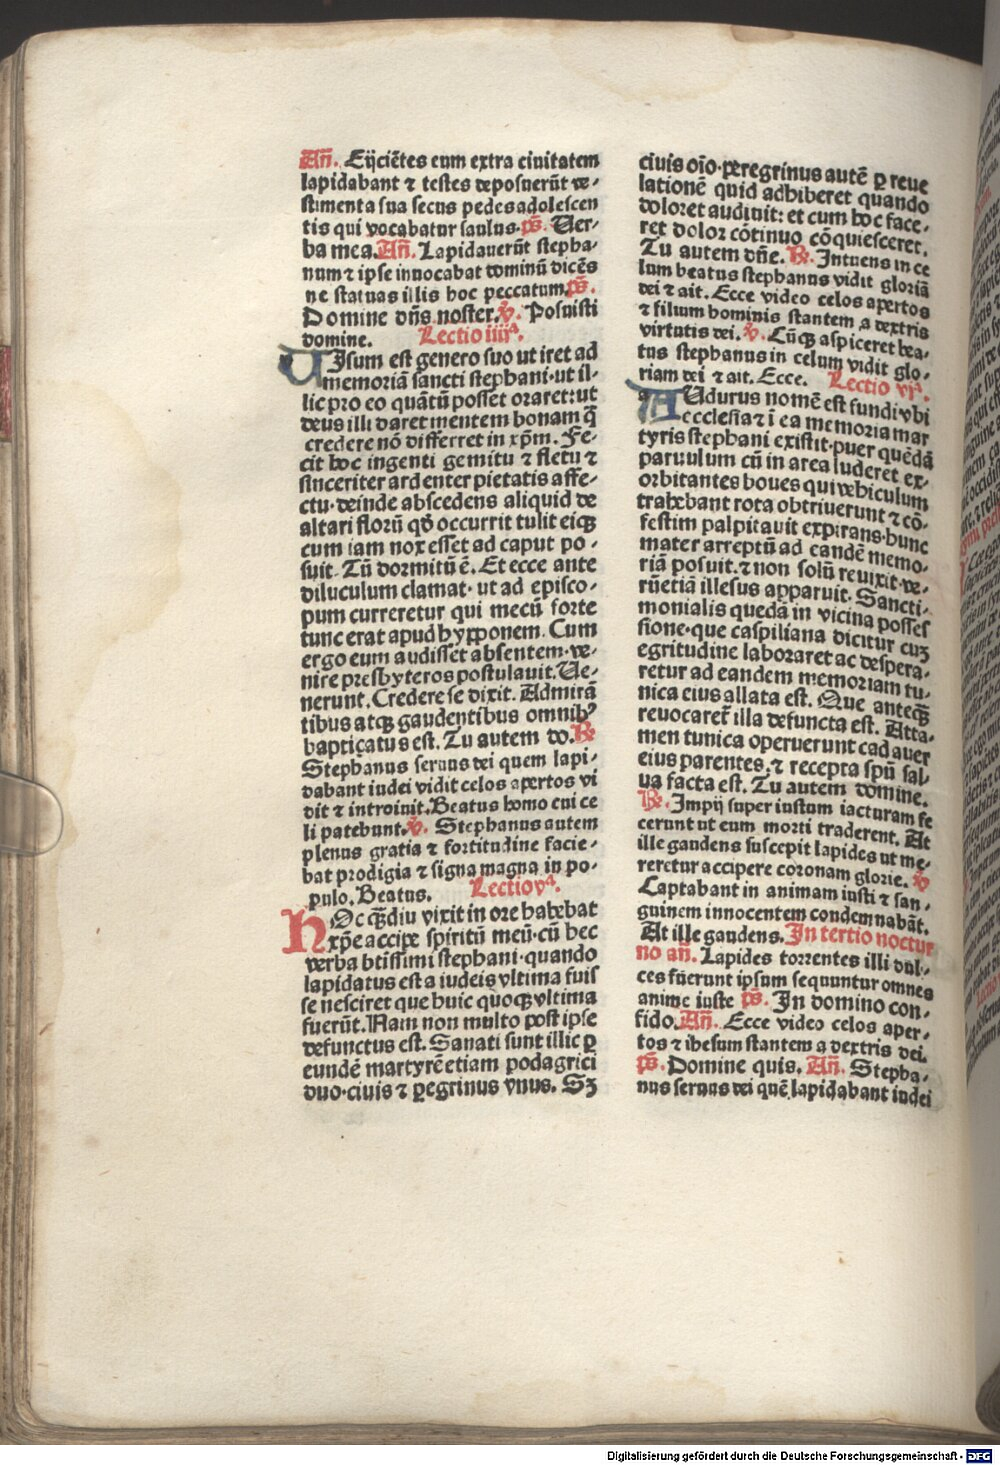 Añ. Eijciētes eum extra ciuitatem
lapidabant ⁊ testes deposuerūt ve-
stimenta sua secus pedes adolescen
tis qui vocabatur saulus. p̄s. Uer-
ba mea. Añ. Lapidauerūt stepha-
num ⁊ ipse inuocabat dominū dicēs
ne statuas illis hoc peccatum. p̄s.
Domine dn̄s noster. ℣. Posuisti
domine. Lectio iiijª.
UIsum est genero suo ut iret ad
memoriā sancti stephani·ut il-
lic pro eo quātū posset oraret:ut
deus illi daret mentem bonam q̄
credere nō differret in xp̄m. Fe-
cit hoc ingenti gemitu ⁊ fletu ⁊
sinceriter ardenter pietatis affe-
ctu·deinde abscedens aliquid de
altari florū qd̄ occurrit tulit eiqꝫ
cum iam nox esset ad caput po-
suit. Tū dormitū ē. Et ecce ante
diluculum clamat· ut ad episco-
pum curreretur qui mecū forte
tunc erat apud hypponem. Cum
ergo eum audisset absentem·ve-
nire presbyteros postulauit. Ue-
nerunt. Credere se dixit. Admirā
tibus atqꝫ gaudentibus omnibꝰ
baptizatus est. Tu autem do. ℟
Stephanus seruus dei quem lapi-
dabant iudei vidit celos apertos vi
dit ⁊ introiuit. Beatus homo cui ce
li patebunt. ℣. Stephanus autem
plenus gratia ⁊ fortitudine facie-
bat prodigia ⁊ signa magna in po-
pulo. Beatus. Lectio vª.
HOc qꝫdiu vixit in ore habebat
xp̄e accipe spiritū meū·cū hec
verba btissimi stephani·quando
lapidatus est a iudeis vltima fuis
se nesciret que huic quoqꝫ vltima
fuerūt. Nam non multo post ipse
defunctus est. Sanati sunt illic ꝑ
eundē martyrē etiam podagrici
duo·ciuis ⁊ ꝑegrinus vnus. Sꝫ
ciuis oīo·peregrinus autē ꝑ reue
lationē quid adhiberet quando
doloret audiuit: et cum hoc face-
ret dolor cōtinuo cōquiesceret.
Tu autem dn̄e. ℟. Intuens in ce
lum beatus stephanus vidit gloriā
dei ⁊ ait. Ecce video celos apertos
⁊ filium hominis stantem a dextris
virtutis dei. ℣. Cūqꝫ aspiceret bea-
tus stephanus in celum vidit glo-
riam dei ⁊ ait. Ecce. Lectio vjª.
AUdurus nomē est fundi·vbi
ecclesia ⁊ ī ea memoria mar
tyris stephani existit·puer quēdā
paruulum cū in area luderet ex-
orbitantes boues qui vehiculum
trahebant rota obtriuerunt ⁊ cō-
festim palpitauit expirans·hunc
mater arreptū ad eandē memo-
riā posuit.⁊ non solū reuixit·ve-
rūetiā illesus apparuit. Sancti-
monialis quedā in vicina posses
sione·que caspiliana dicitur cuꝫ
egritudine laboraret ac despera-
retur ad eandem memoriam tu-
nica eius allata est. Que anteqꝫ
reuocaret̄ illa defuncta est. Atta-
men tunica operuerunt cadauer
eius parentes.⁊ recepta spū sal-
ua facta est. Tu autem domine.
℟. Impij super iustum iacturam fe
cerunt ut eum morti traderent. At
ille gaudens suscepit lapides ut me-
reretur accipere coronam glorie. ℣
Captabant in animam iusti ⁊ san-
guinem innocentem condemnabāt.
At ille gaudens. In tertio noctur
no añ. Lapides torrentes illi dul-
ces fuerunt ipsum sequuntur omnes
anime iuste p̄s. In domino con-
fido. Añ. Ecce video celos aper-
tos ⁊ ihesum stantem a dextris dei.
p̄s. Domine quis. Añ. Stepha-
nus seruus dei quē lapidabant iudei
Digitalisierung gefördert durch die Deutsche Forschungsgemeinschaft - DFG